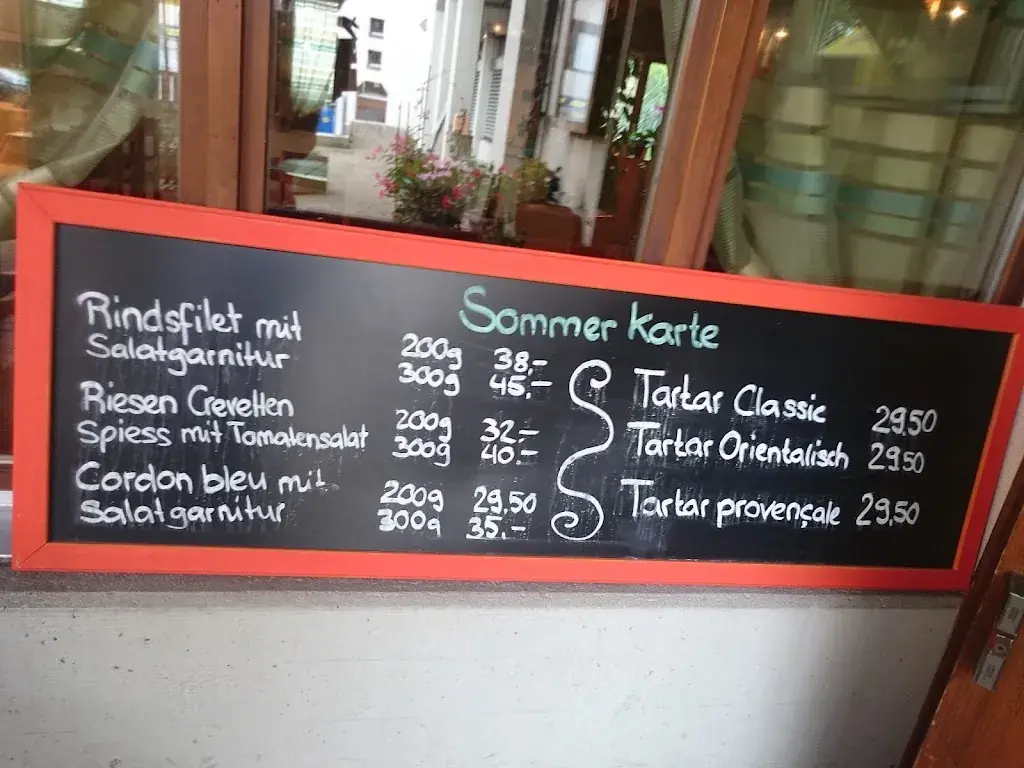 Sommer Karte
Rindsfilet mit
Salatgarnitur
200g 38.-
300g 45.-
Riesen Crevetten
Spiess mit Tomatensalat
200g 32.-
300g 40.-
Cordon bleu mit
Salatgarnitur
200g 29.50
300g 35.-
Tartar Classic 29.50
Tartar Orientalisch 29.50
Tartar provençale 29.50